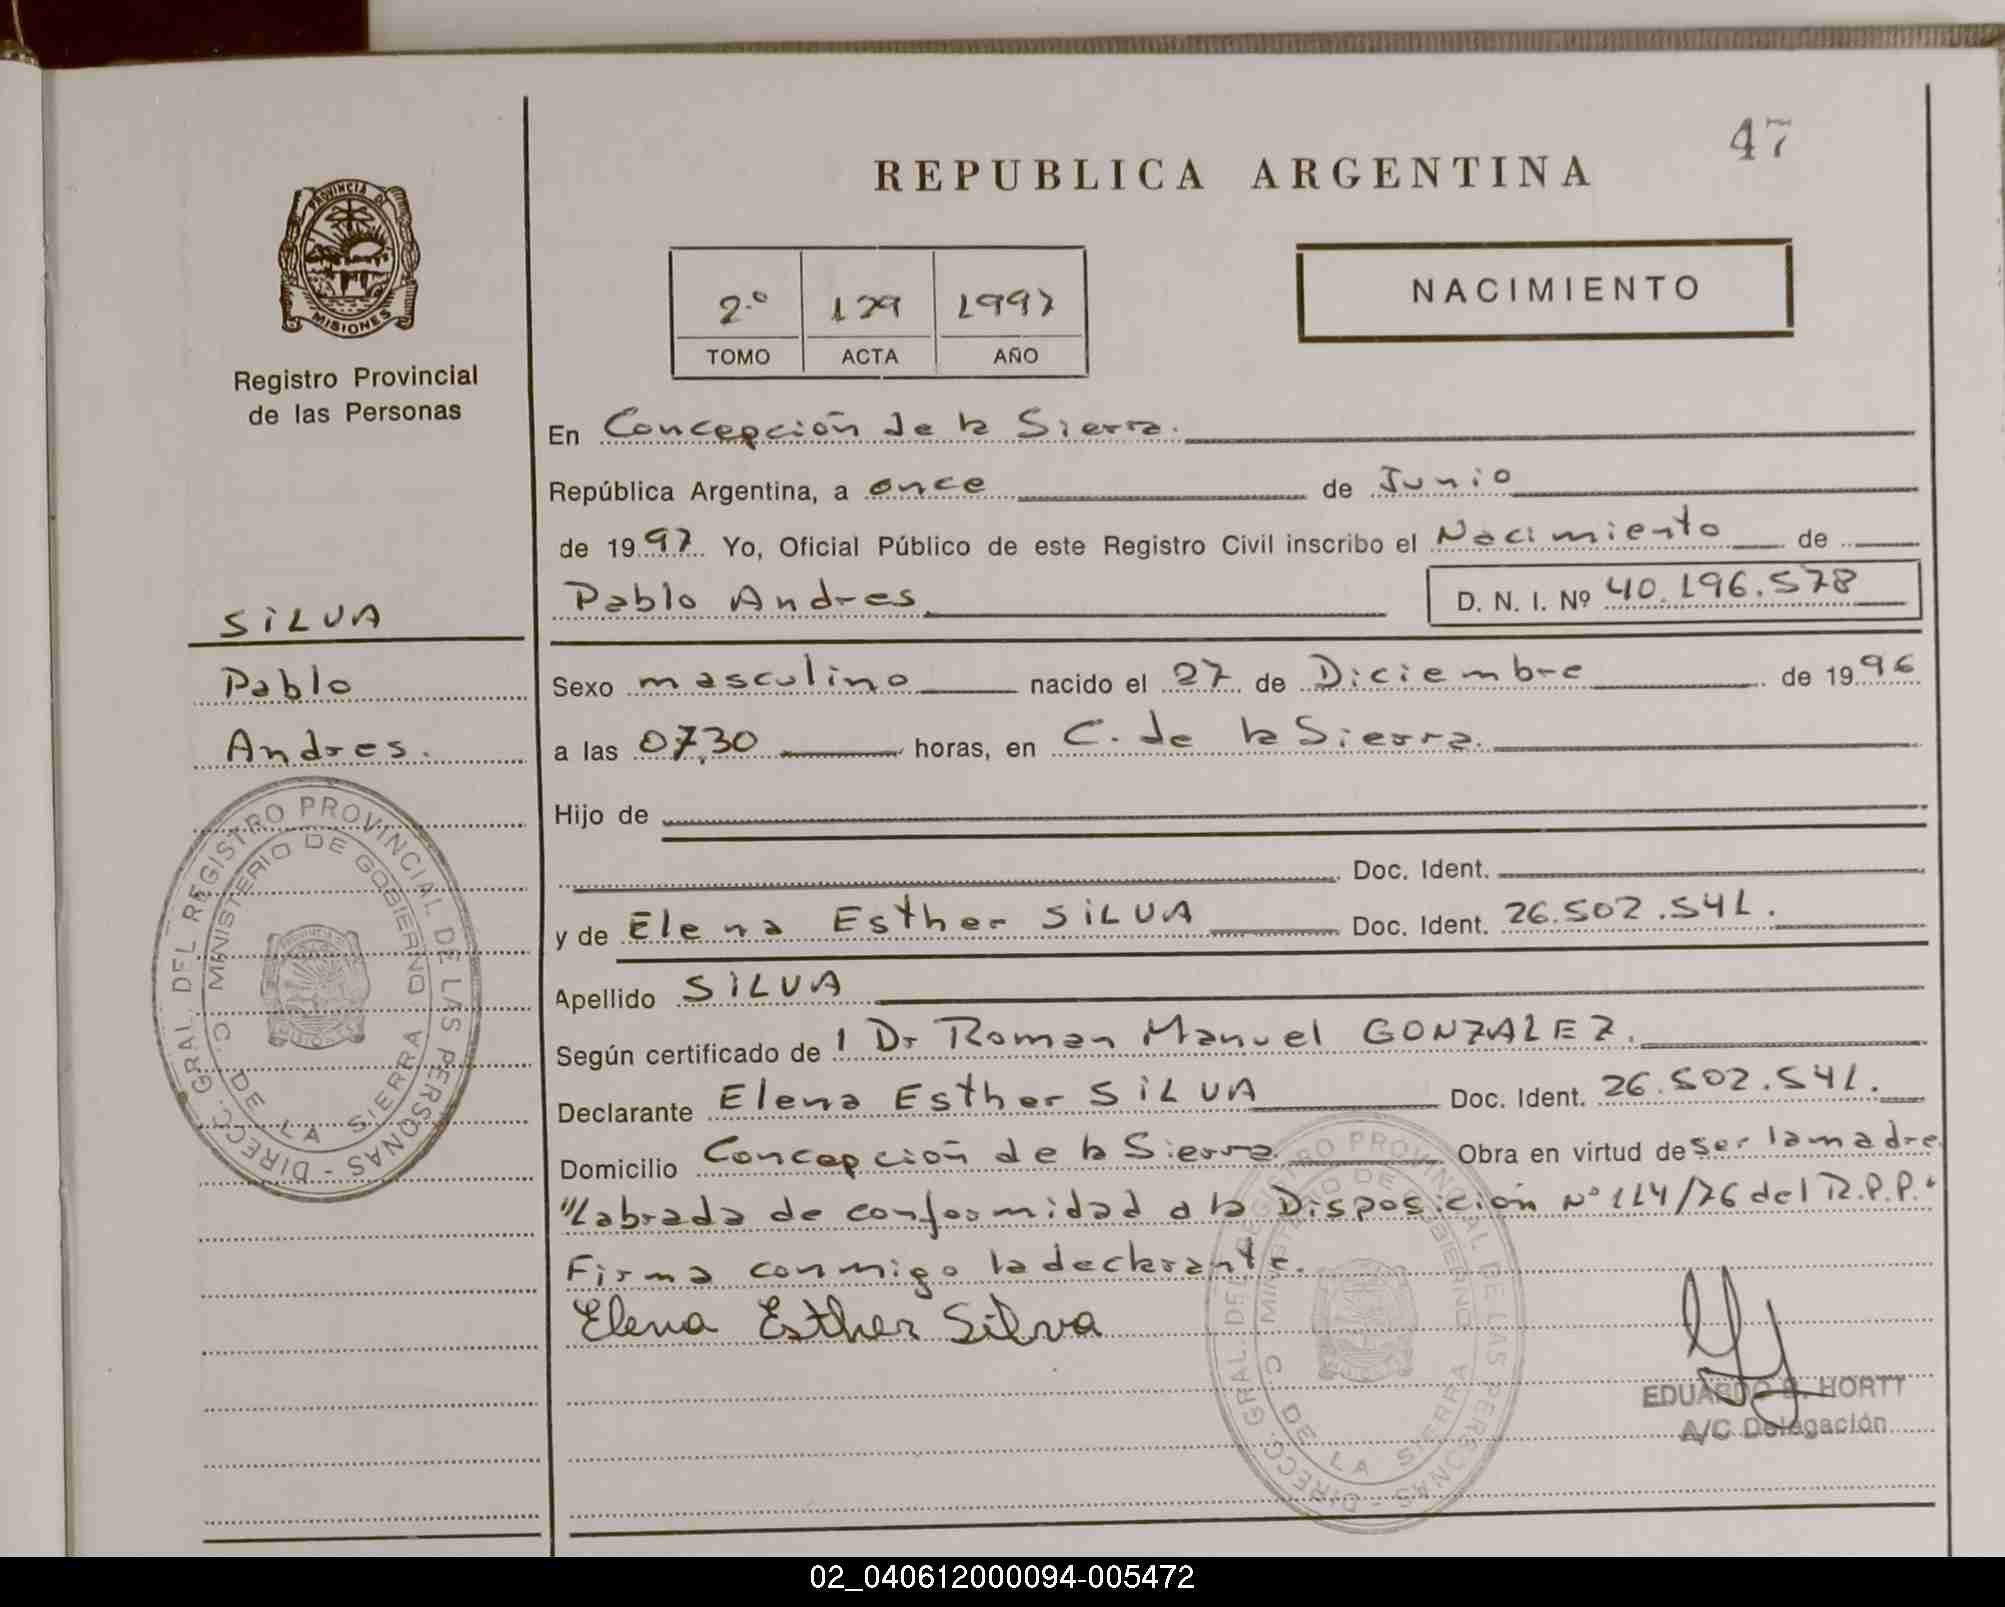 47
REPUBLICA ARGENTINA
PROVINCIA DE
MISIONES
Registro Provincial
de las Personas
2.º 179 1997
TOMO ACTA AÑO
NACIMIENTO
En Concepción de la Sierra.
República Argentina, a once de Junio
de 1997 Yo, Oficial Público de este Registro Civil inscribo el Nacimiento de
Pablo Andres D. N. I. Nº 40.196.578
SILVA
Pablo
Andres.
Sexo masculino nacido el 27 de Diciembre de 1996
a las 07,30 horas, en C. de la Sierra.
Hijo de
Doc. Ident.
y de Elena Esther SILVA Doc. Ident. 26.502.541.
Apellido SILVA
Según certificado de 1 Dr Roman Manuel GONZALEZ.
Declarante Elena Esther SILVA Doc. Ident. 26.502.541.
Domicilio Concepción de la Sierra. Obra en virtud de ser la madre
"Labrada de conformidad a la Disposición Nº 114/76 del R.P.P."
Firma conmigo la declarante.
Elena Esther Silva
EDUARDO HORTT
A/C Delegación
DIRECC. GRAL. DEL REGISTRO PROVINCIAL DE LAS PERSONAS -
MINISTERIO DE GOBIERNO
C. DE LA SIERRA
DIRECC. GRAL. DEL REGISTRO PROVINCIAL DE LAS PERSONAS -
MINISTERIO DE GOBIERNO
C. DE LA SIERRA
02_040612000094-005472